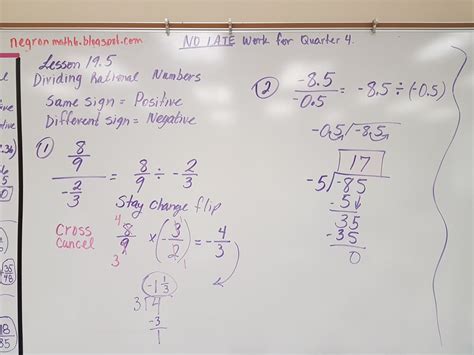 negronmath6.blogspot.com
NO LATE work for Quarter 4.
Lesson 19.5
Dividing Rational Numbers
Same sign = Positive
Different sign = Negative
① 8/9 / -2/3 = 8/9 ÷ -2/3
Stay change flip
Cross Cancel
4 8/9 3 × (-3/2) 1 = -4/3
-1 1/3
3⟌4
-3
1
② -8.5/-0.5 = -8.5 ÷ (-0.5)
-0.5⟌-8.5
17
-5⟌-85
-5↓
35
-35
0